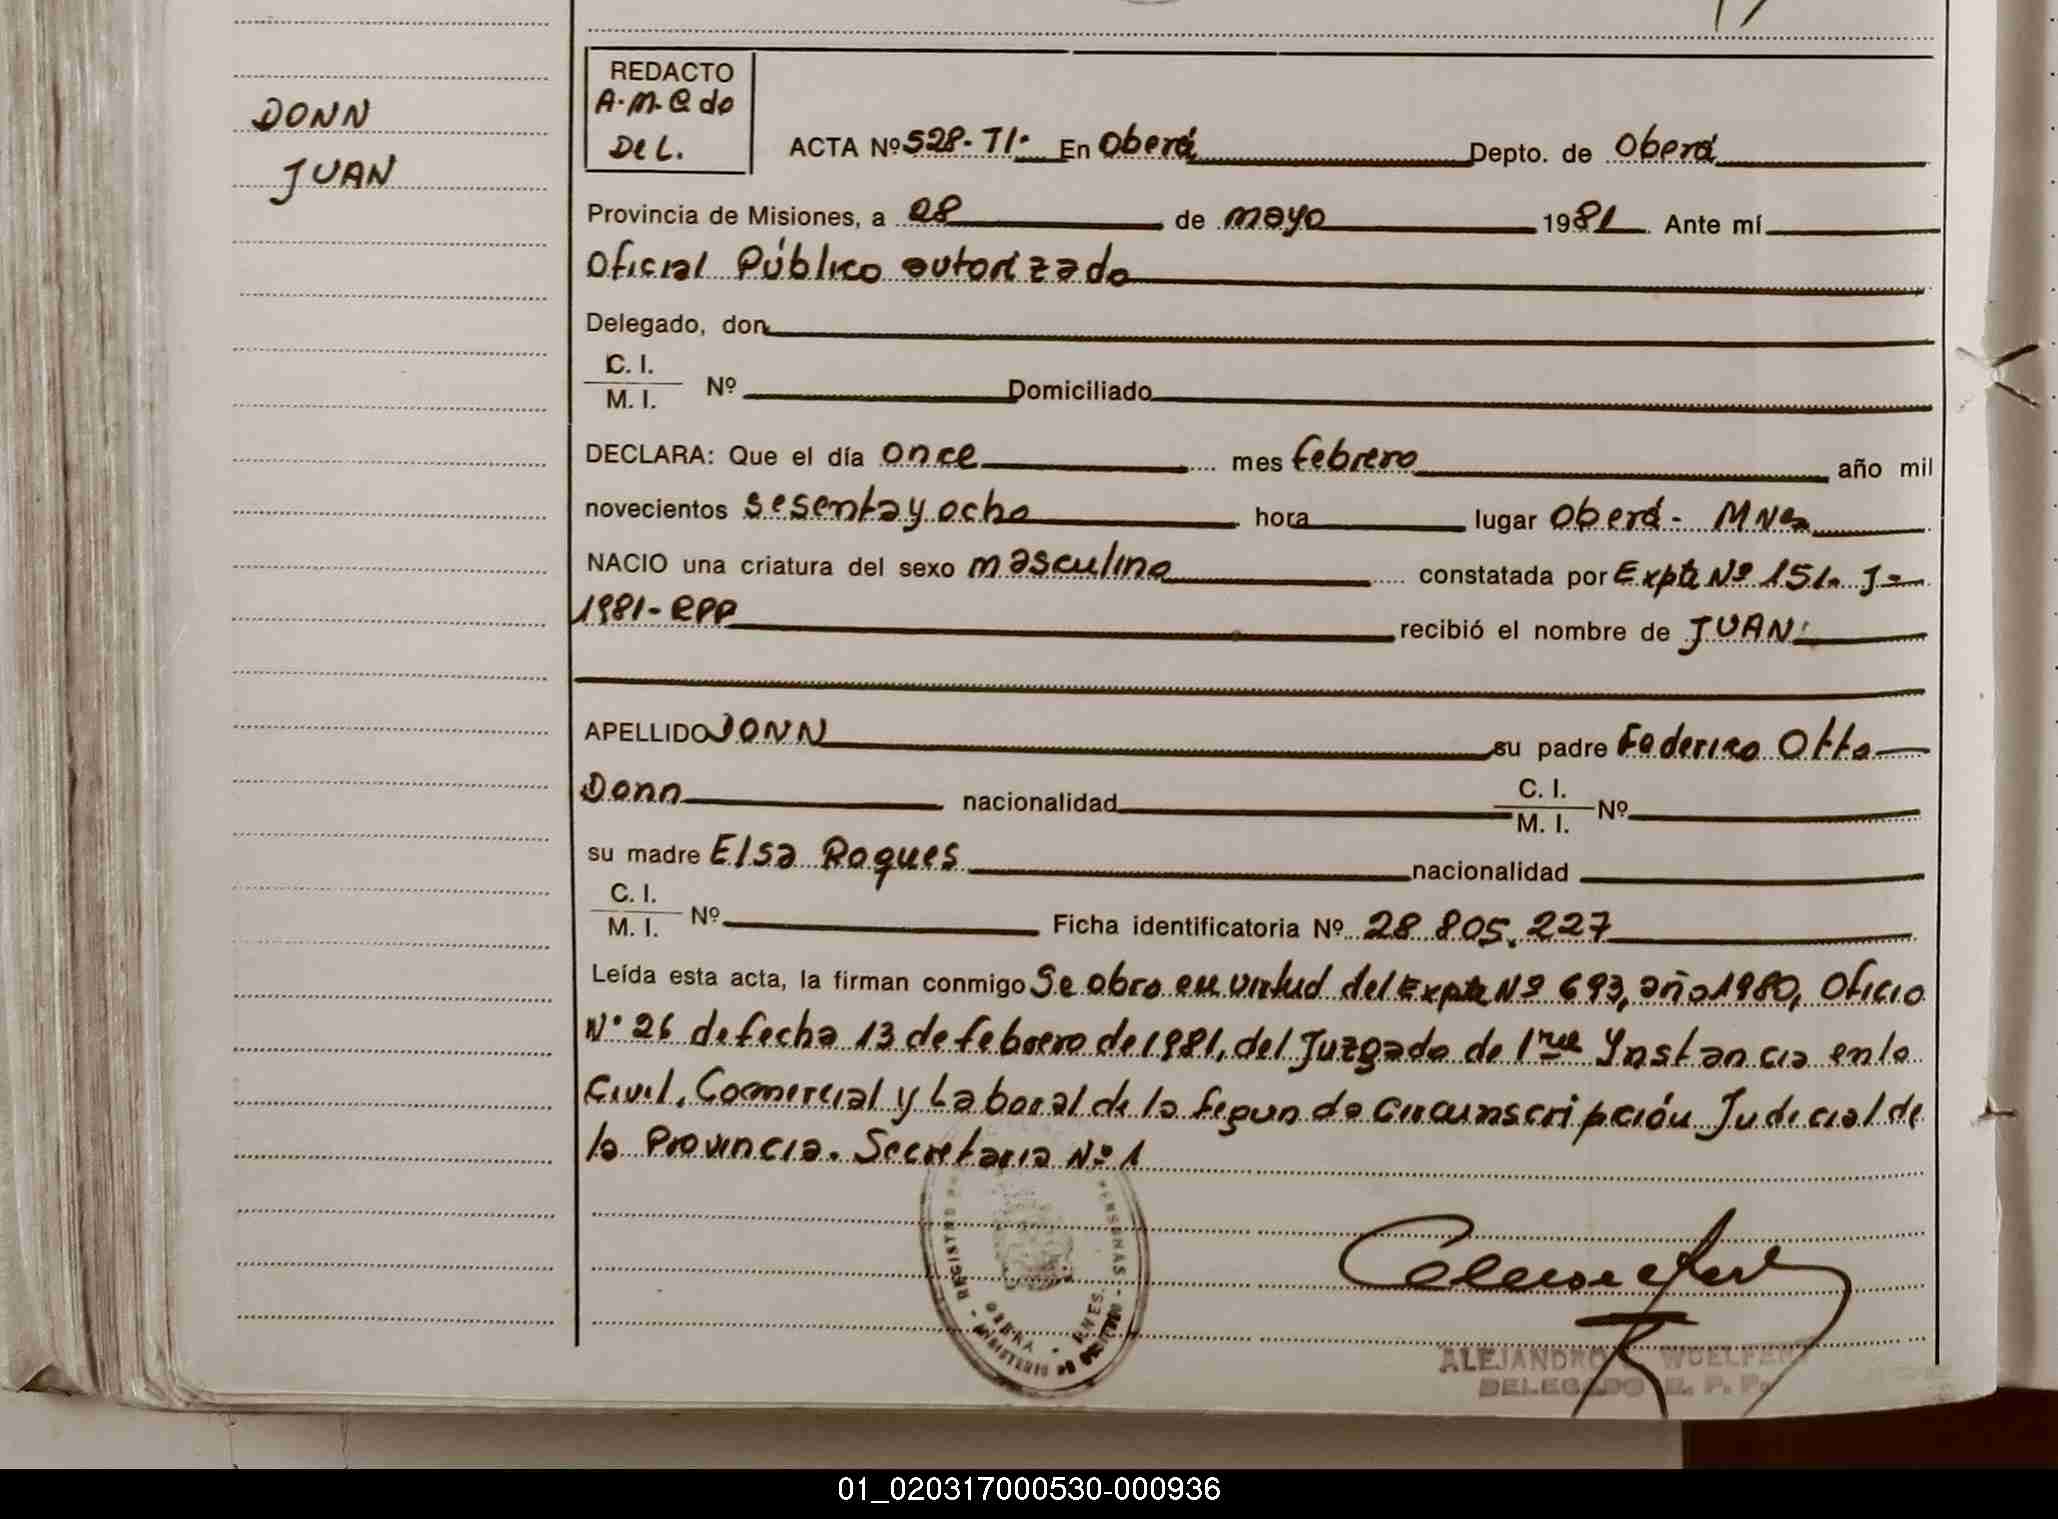 DONN
JUAN
REDACTO
A.M.Q do
Del.
ACTA Nº 528-TI- En Oberá Depto. de Oberá
Provincia de Misiones, a 28 de mayo 1981. Ante mí
Oficial Público autorizado
Delegado, don
C. I.
M. I. Nº Domiciliado
DECLARA: Que el día once mes febrero año mil
novecientos sesenta y ocho hora lugar Oberá - Mnes
NACIO una criatura del sexo masculino constatada por Expte Nº 151- J-
1981-RPP recibió el nombre de JUAN
APELLIDO DONN su padre Federico Otto
Donn nacionalidad C. I. M. I. Nº
su madre Elsa Roques nacionalidad
C. I.
M. I. Nº Ficha identificatoria Nº 28 805.227
Leída esta acta, la firman conmigo Se obra en virtud del Expte Nº 693, año 1980, Oficio
Nº 26 de fecha 13 de febrero de 1981, del Juzgado de 1ra Ynstancia en lo
Civil, Comercial y Laboral de la segunda Circunscripción Judicial de
la Provincia. Secretaria Nº 1
REGISTRO PERSONAS
OBERA - MNES.
ALEJANDRO WOELFERT
DELEGADO R. P. P.
01_020317000530-000936